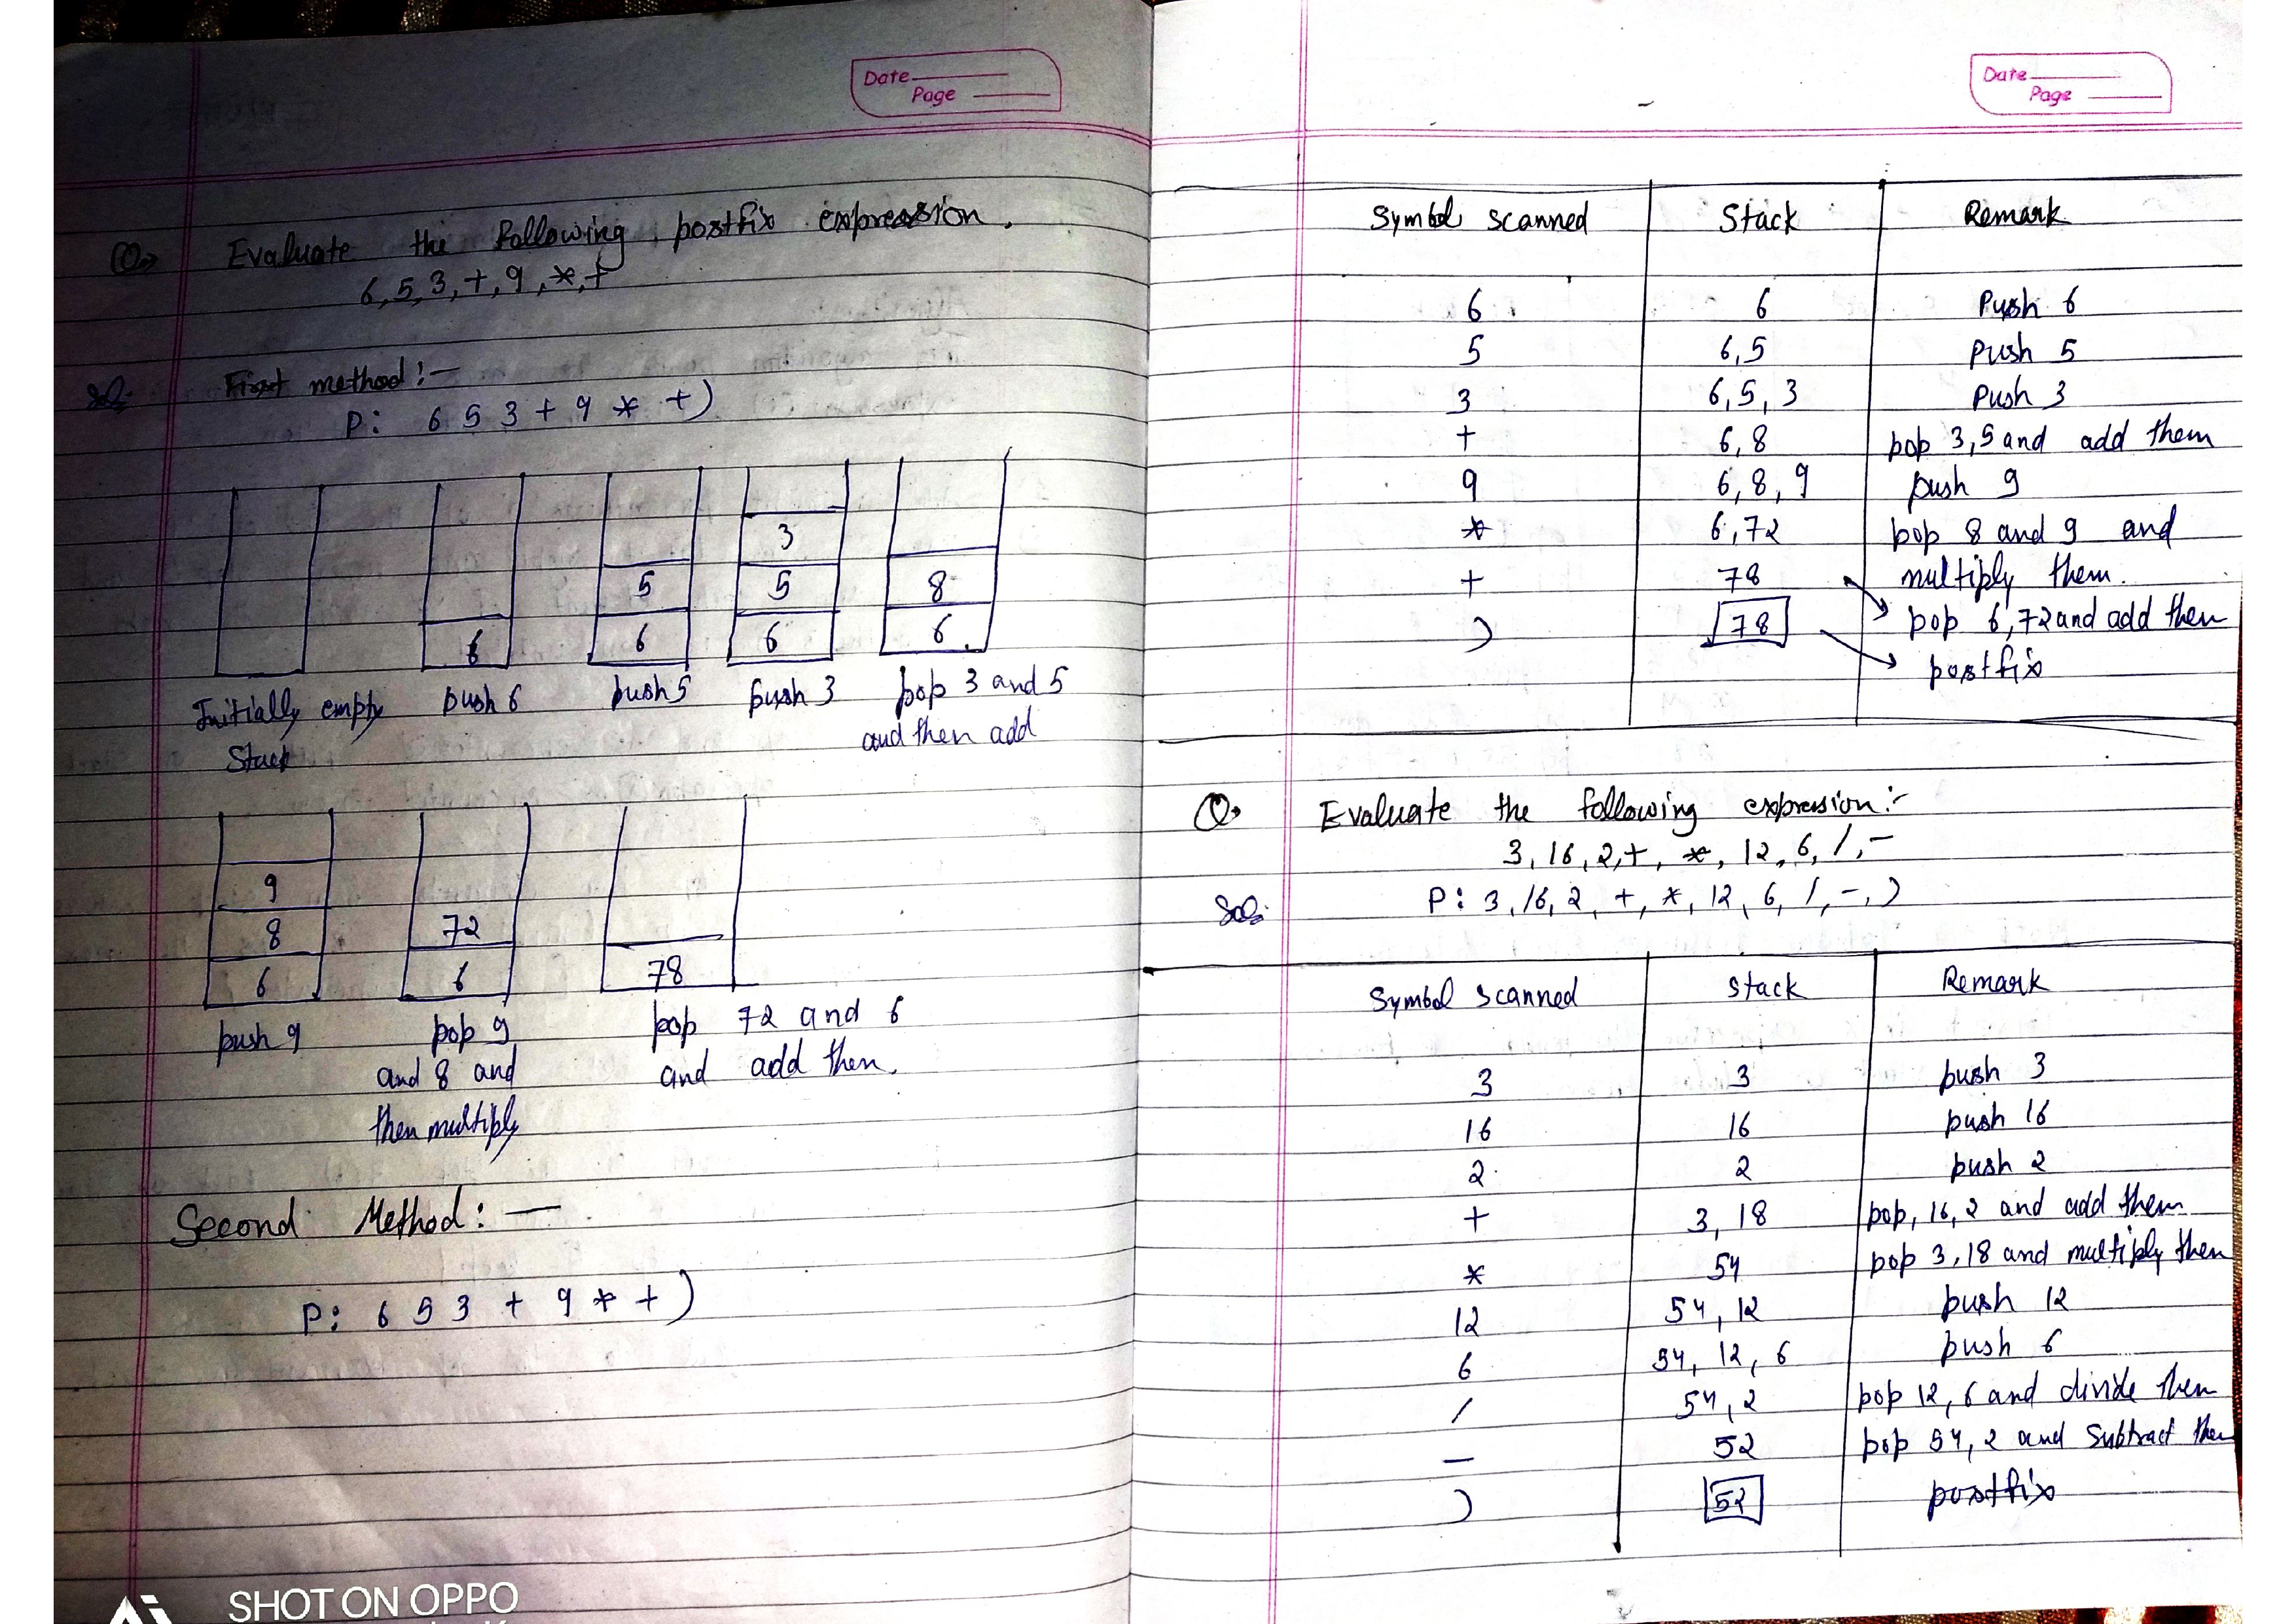 Date
Page
Q→ Evaluate the following postfix expression.
6,5,3,+,9,*,+
Sol: First method:-
P: 6 5 3 + 9 * +)
3
5 5 8
6 6 6 6
Initially empty push 6 push 5 push 3 pop 3 and 5
Stack and then add
9
8 72
6 6 78
push 9 pop 9 pop 72 and 6
and 8 and and add them.
then multiply
Second Method: —
P: 6 5 3 + 9 * +)
SHOT ON OPPO
Date
Page
Symbol scanned Stack Remark
6 6 Push 6
5 6,5 Push 5
3 6,5,3 Push 3
+ 6,8 pop 3,5 and add them
9 6,8,9 push 9
* 6,72 pop 8 and 9 and
+ 78 multiply them.
) 78 pop 6,72 and add them
postfix
Q→ Evaluate the following expression:-
3,16,2,+,*,12,6,/,-
Sol: P: 3,16,2,+,*,12,6,/,-,)
Symbol scanned Stack Remark
3 3 push 3
16 16 push 16
2 2 push 2
+ 3,18 pop, 16,2 and add them
* 54 pop 3,18 and multiply them
12 54,12 push 12
6 54,12,6 push 6
/ 54,2 pop 12,6 and divide them
- 52 pop 54,2 and Subtract them
) 52 postfix